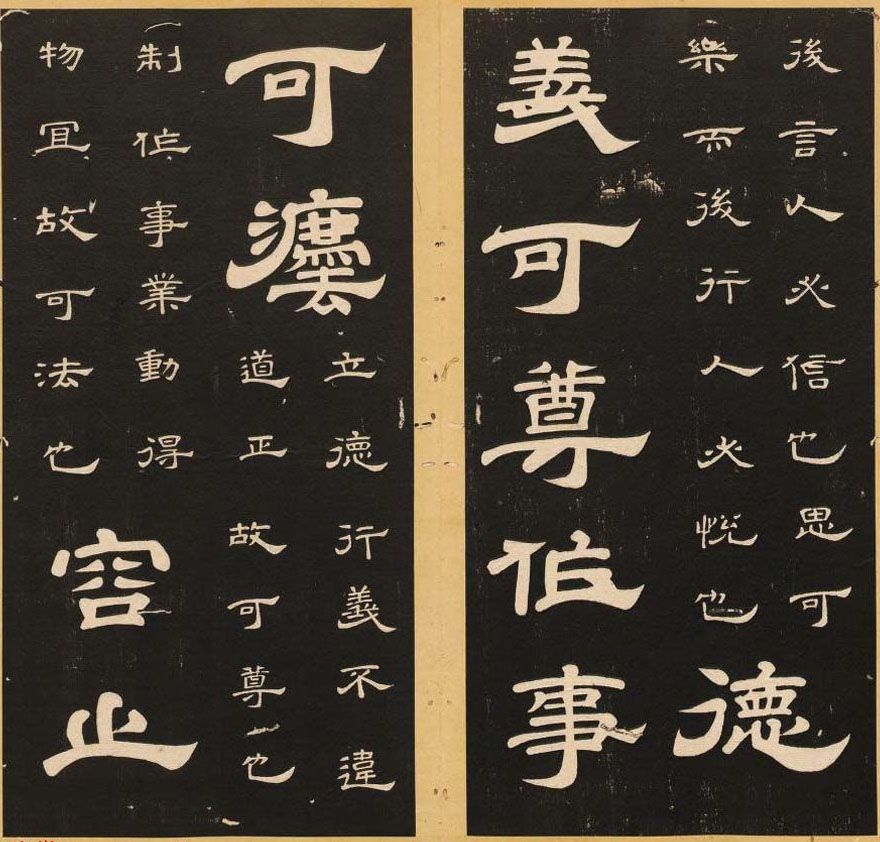 後言人必信也思可
樂而後行人必悅也
德
義可尊作事
可灋
立德行義不違
道正故可尊也
制作事業動得
物冝故可法也
容止